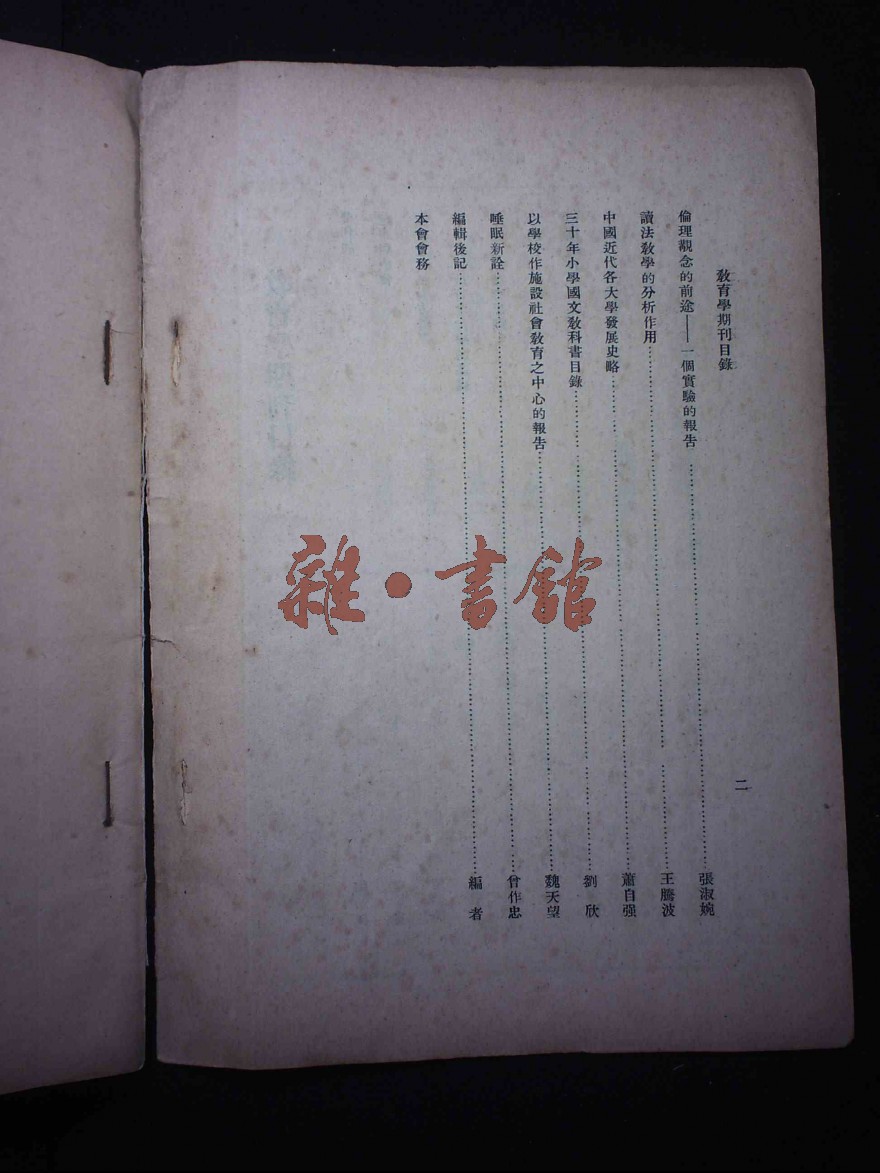 教育學期刊目錄
二
倫理觀念的前途——一個實驗的報告……張淑婉
讀法教學的分析作用……王騰波
中國近代各大學發展史略……蕭自强
三十年小學國文教科書目錄……劉欣
以學校作施設社會教育之中心的報告……魏天望
睡眠新詮……曾作忠
編輯後記……編者
本會會務
雜·書館